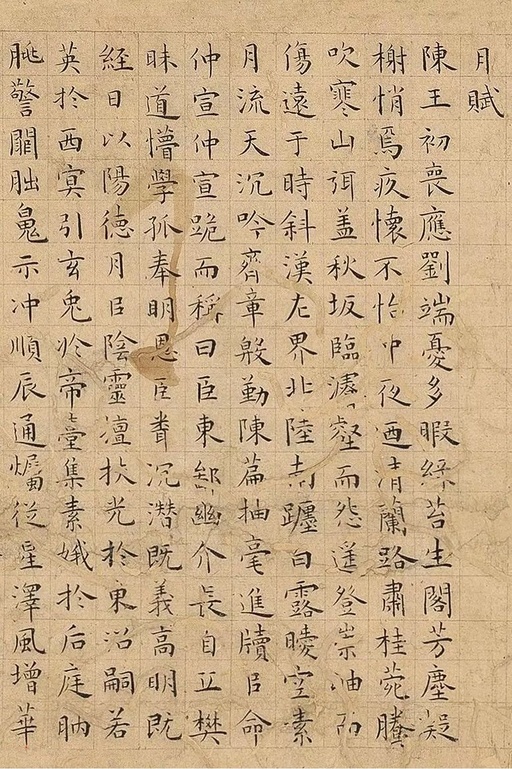 月賦
陳王初喪應劉端憂多暇綠苔生閣芳塵凝
榭悄焉疚懷不怡中夜迺清蘭路肅桂菀騰
吹寒山弭盖秋坂臨濬壑而怨遥登崇岫而
傷遠于時斜漢左界北陸南躔白露曖空素
月流天沉吟齊章殷勤陳篇抽毫進牘以命
仲宣仲宣跪而稱曰臣東鄙幽介長自丘樊
昧道懵學孤奉明恩臣聞沉潜既義高明既
經日以陽德月以陰靈擅扶光於東沼嗣若
英於西冥引玄兔於帝臺集素娥於后庭朒
朓警闕朏魄示冲順辰通燭從星澤風增華